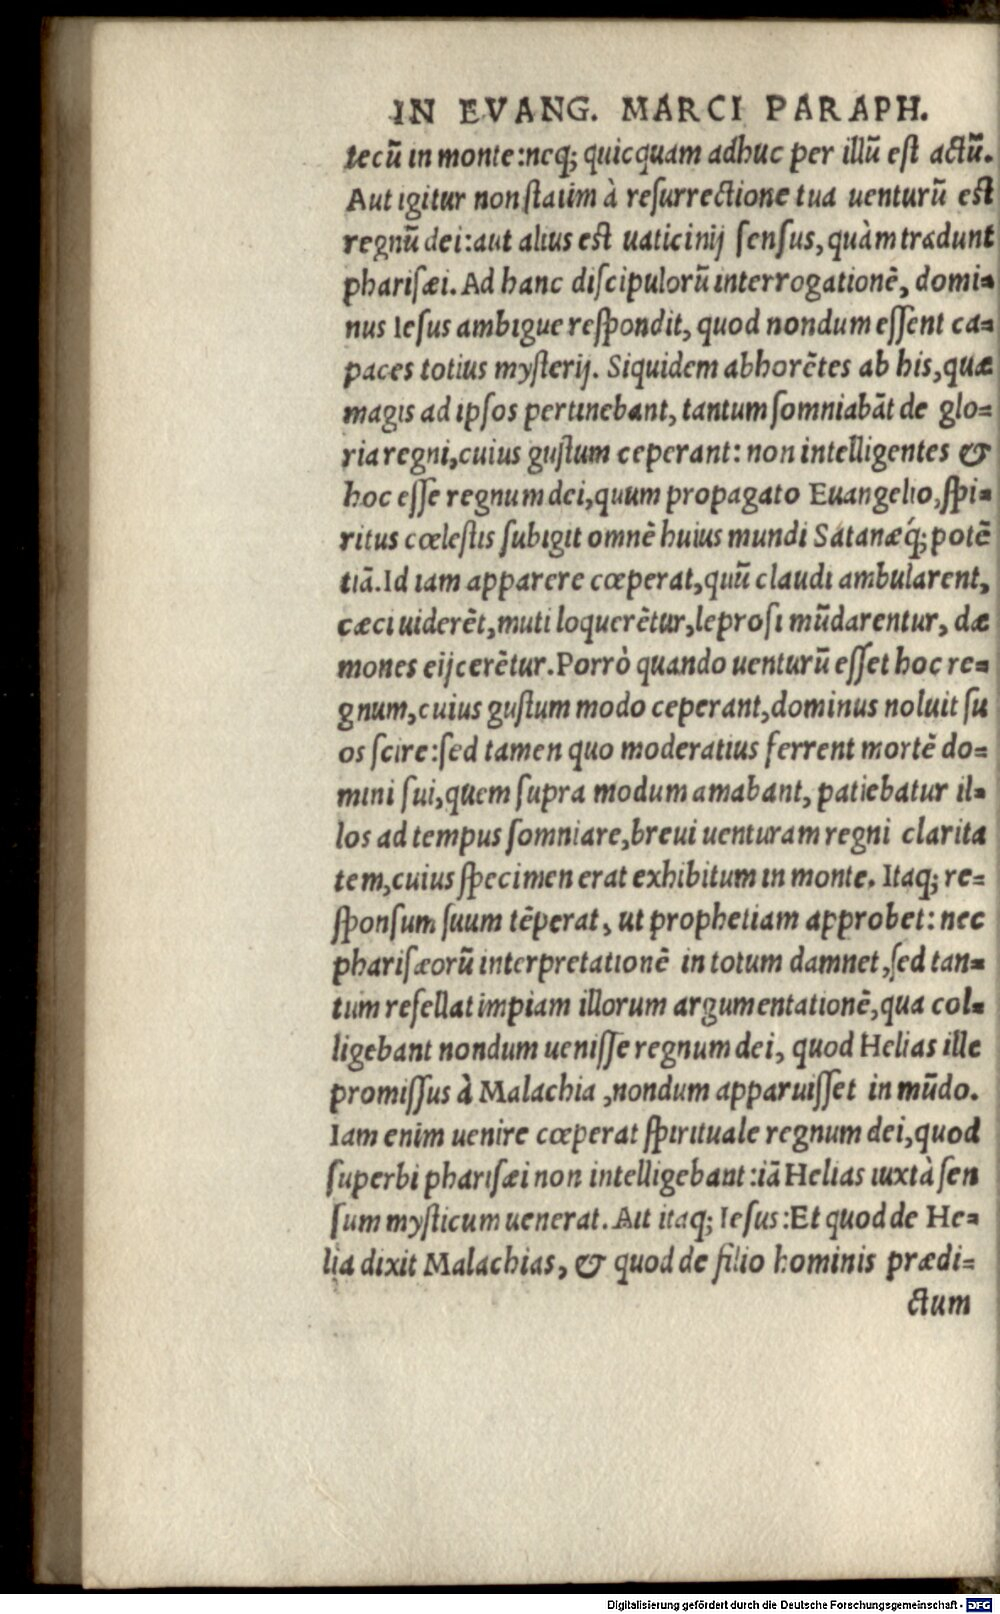 IN EVANG. MARCI PARAPH.
tecũ in monte:neq; quicquam adhuc per illũ est actũ.
Aut igitur non statim à resurrectione tua uenturũ est
regnũ dei:aut alius est uaticinij sensus, quàm tradunt
pharisæi. Ad hanc discipulorũ interrogationẽ, domi=
nus Iesus ambigue respondit, quod nondum essent ca=
paces totius mysterij. Siquidem abhorẽtes ab his, quæ
magis ad ipsos pertinebant, tantum somniabãt de glo=
ria regni, cuius gustum ceperant: non intelligentes &
hoc esse regnum dei, quum propagato Euangelio, spi=
ritus cœlestis subigit omnẽ huius mundi Satanæq́; potẽ
tiã. Id iam apparere cœperat, quũ claudi ambularent,
cæci uiderẽt, muti loquerẽtur, leprosi mũdarentur, dæ
mones eijcerẽtur. Porrò quando uenturũ esset hoc re=
gnum, cuius gustum modo ceperant, dominus noluit su
os scire: sed tamen quo moderatius ferrent mortẽ do=
mini sui, quem supra modum amabant, patiebatur il=
los ad tempus somniare, breui uenturam regni clarita
tem, cuius specimen erat exhibitum in monte. Itaq; re=
sponsum suum tẽperat, ut prophetiam approbet: nec
pharisæorũ interpretationẽ in totum damnet, sed tan=
tum refellat impiam illorum argumentationẽ, qua col=
ligebant nondum uenisse regnum dei, quod Helias ille
promissus à Malachia, nondum apparuisset in mũdo.
Iam enim uenire cœperat spirituale regnum dei, quod
superbi pharisæi non intelligebant: iã Helias iuxtà sen
sum mysticum uenerat. Ait itaq; Iesus: Et quod de He=
lia dixit Malachias, & quod de filio hominis prædi=
ctum
Digitalisierung gefördert durch die Deutsche Forschungsgemeinschaft - DFG